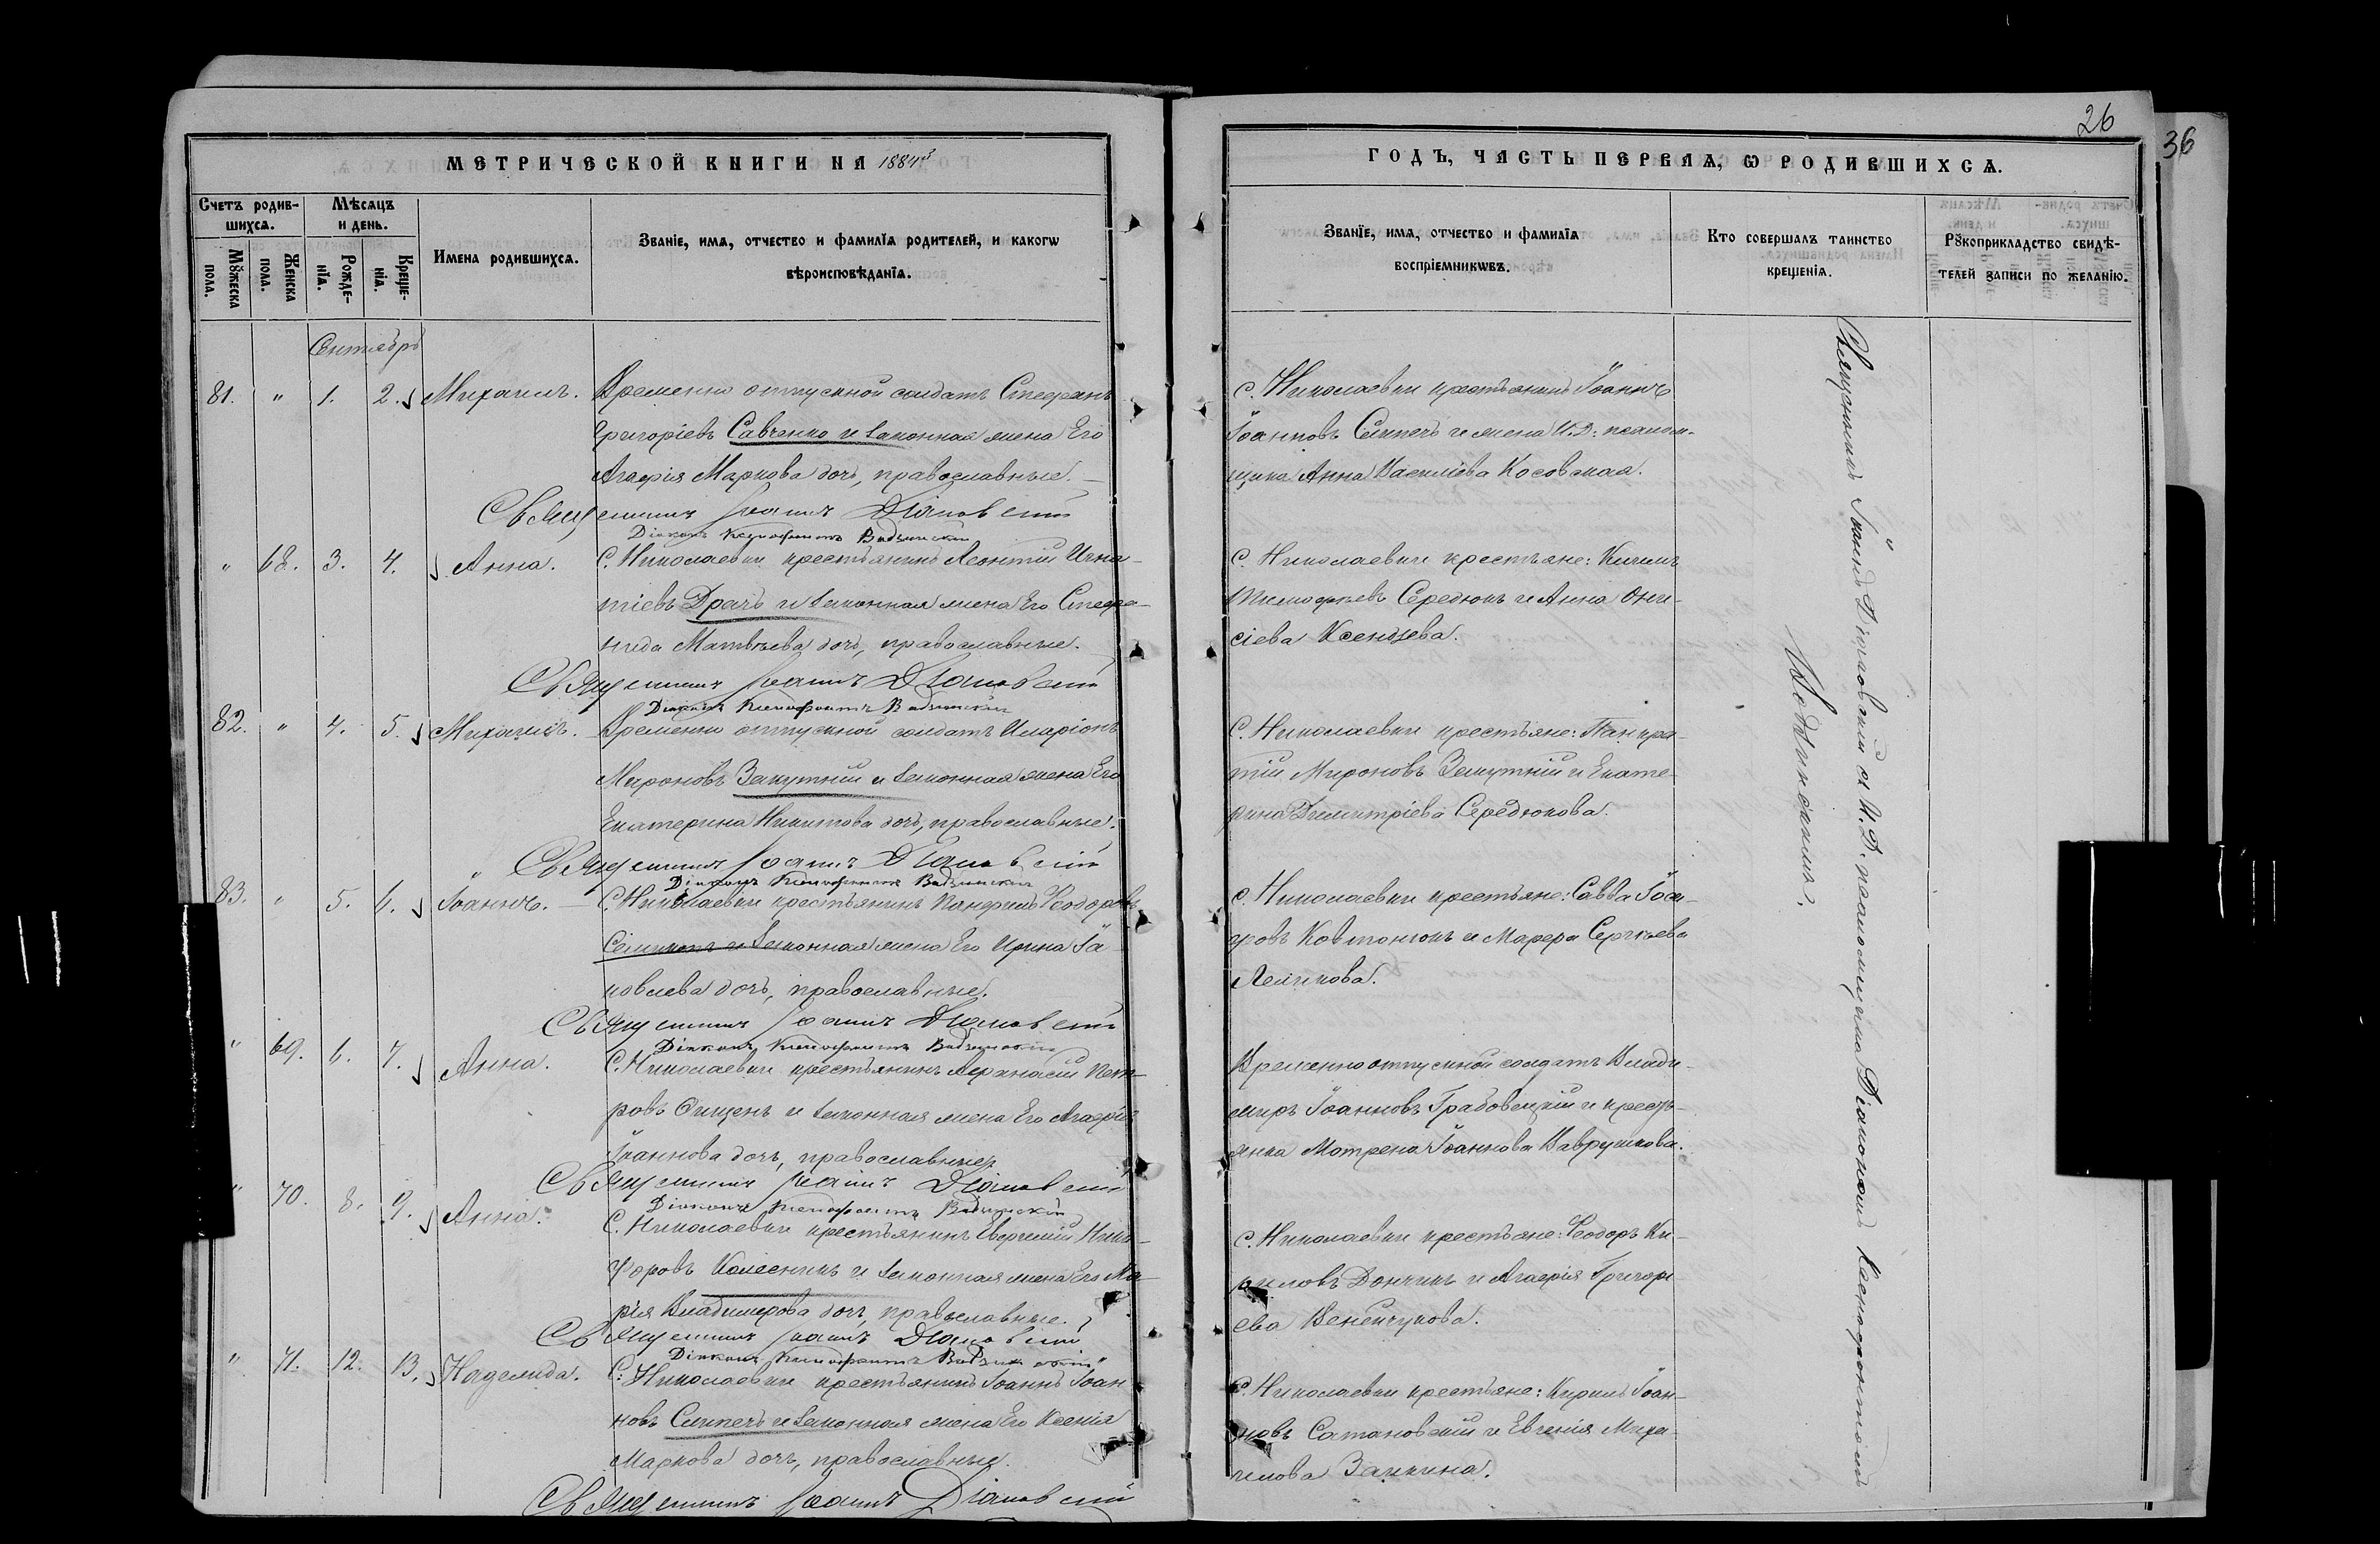 26
36
МЕТРИЧЕСКОЙ КНИГИ НА 1884й
ГОДЪ, ЧАСТЬ ПЕРВАЯ, Ѡ РОДИВШИХСѦ.
Счетъ родив-
шихсѧ.
Мѣсѧцъ
и день.
Мꙋжеска
пола.
Женска
пола.
Рожде-
нїѧ.
Креще-
нїѧ.
Имена родившихсѧ.
Званїе, имѧ, отчество и фамилїѧ родителей, и какогѡ
вѣроисповѣданїѧ.
Званїе, имѧ, отчество и фамилїѧ
воспрїемникѡвъ.
Кто совершалъ таинство
крещенїѧ.
Рꙋкоприкладство свидѣ-
телей записи по желанїю.
Сентябрь
81. " 1. 2. Михаилъ.
Временно отпускной солдатъ Стефанъ
Григоріевъ Савченко и законная жена Его
Агафія Маркова дочь, православные.
Священникъ Іоаннъ Діаковскій
Діаконъ Ксенофонтъ
с. Николаевки крестьянинъ Іоаннъ
Іоанновъ Слипечъ и жена И.Д. псалом-
щика Анна Василіева Косовская.
" 68. 3. 4. Анна.
С. Николаевки крестьянинъ Леонтій Игна-
тіевъ Драчъ и законная жена Его Стефа-
нида Матвѣева дочь, православные.
Священникъ Іоаннъ Діаковскій
Діаконъ Ксенофонтъ
С. Николаевки крестьяне:
Тимофѣевъ Середюкъ и Анна Они-
сіева Ксендзева.
82. " 4. 5. Михаилъ.
Временно отпускной солдатъ Иларіонъ
Мироновъ Закутній и законная жена Его
Екатерина Никитова дочь, православные.
Священникъ Іоаннъ Діаковскій
Діаконъ Ксенофонтъ
С. Николаевки крестьяне: Панкра-
тій Мироновъ Закутній и Екате-
рина Димитріева Середюкова.
83. " 5. 6. Іоаннъ.
С. Николаевки крестьянинъ Феодоровъ
и законная жена Его Ирина Іа-
ковлева дочь, православные.
Священникъ Іоаннъ Діаковскій
Діаконъ Ксенофонтъ
С. Николаевки крестьяне: Савва
Ковтонюкъ и Марфа Сергѣева
" 69. 6. 7. Анна.
С. Николаевки крестьянинъ Афанасій Пет-
ровъ Сищенъ и законная жена Его Агафія
Іоаннова дочь, православные.
Священникъ Іоаннъ Діаковскій
Діаконъ Ксенофонтъ
Временно отпускной солдатъ Влади-
миръ Іоанновъ Грабовецкій и кресть-
янка Мотрена Іоаннова Ваврушкова.
" 70. 8. 9. Анна.
С. Николаевки крестьянинъ Евфимій Ники-
форовъ Колесникъ и законная жена Его Ма-
рія Владимирова дочь, православные.
Священникъ Іоаннъ Діаковскій
Діаконъ Ксенофонтъ
С. Николаевки крестьяне: Феодоръ Ки-
риловъ Дончикъ и Агафія Григорі-
ева Венгичукова.
" 71. 12. 13. Надежда.
С. Николаевки крестьянинъ Іоаннъ Іоан-
новъ Слипечъ и законная жена Его Ксенія
Маркова дочь, православные.
Священникъ Іоаннъ Діаковскій
С. Николаевки крестьяне: Кирилъ Іоан-
новъ Сатановскій и Евгенія Миха-
илова Заикина.
Священникъ Іоаннъ Діаковскій съ И.Д. псаломщика Діакономъ Ксенофонтомъ